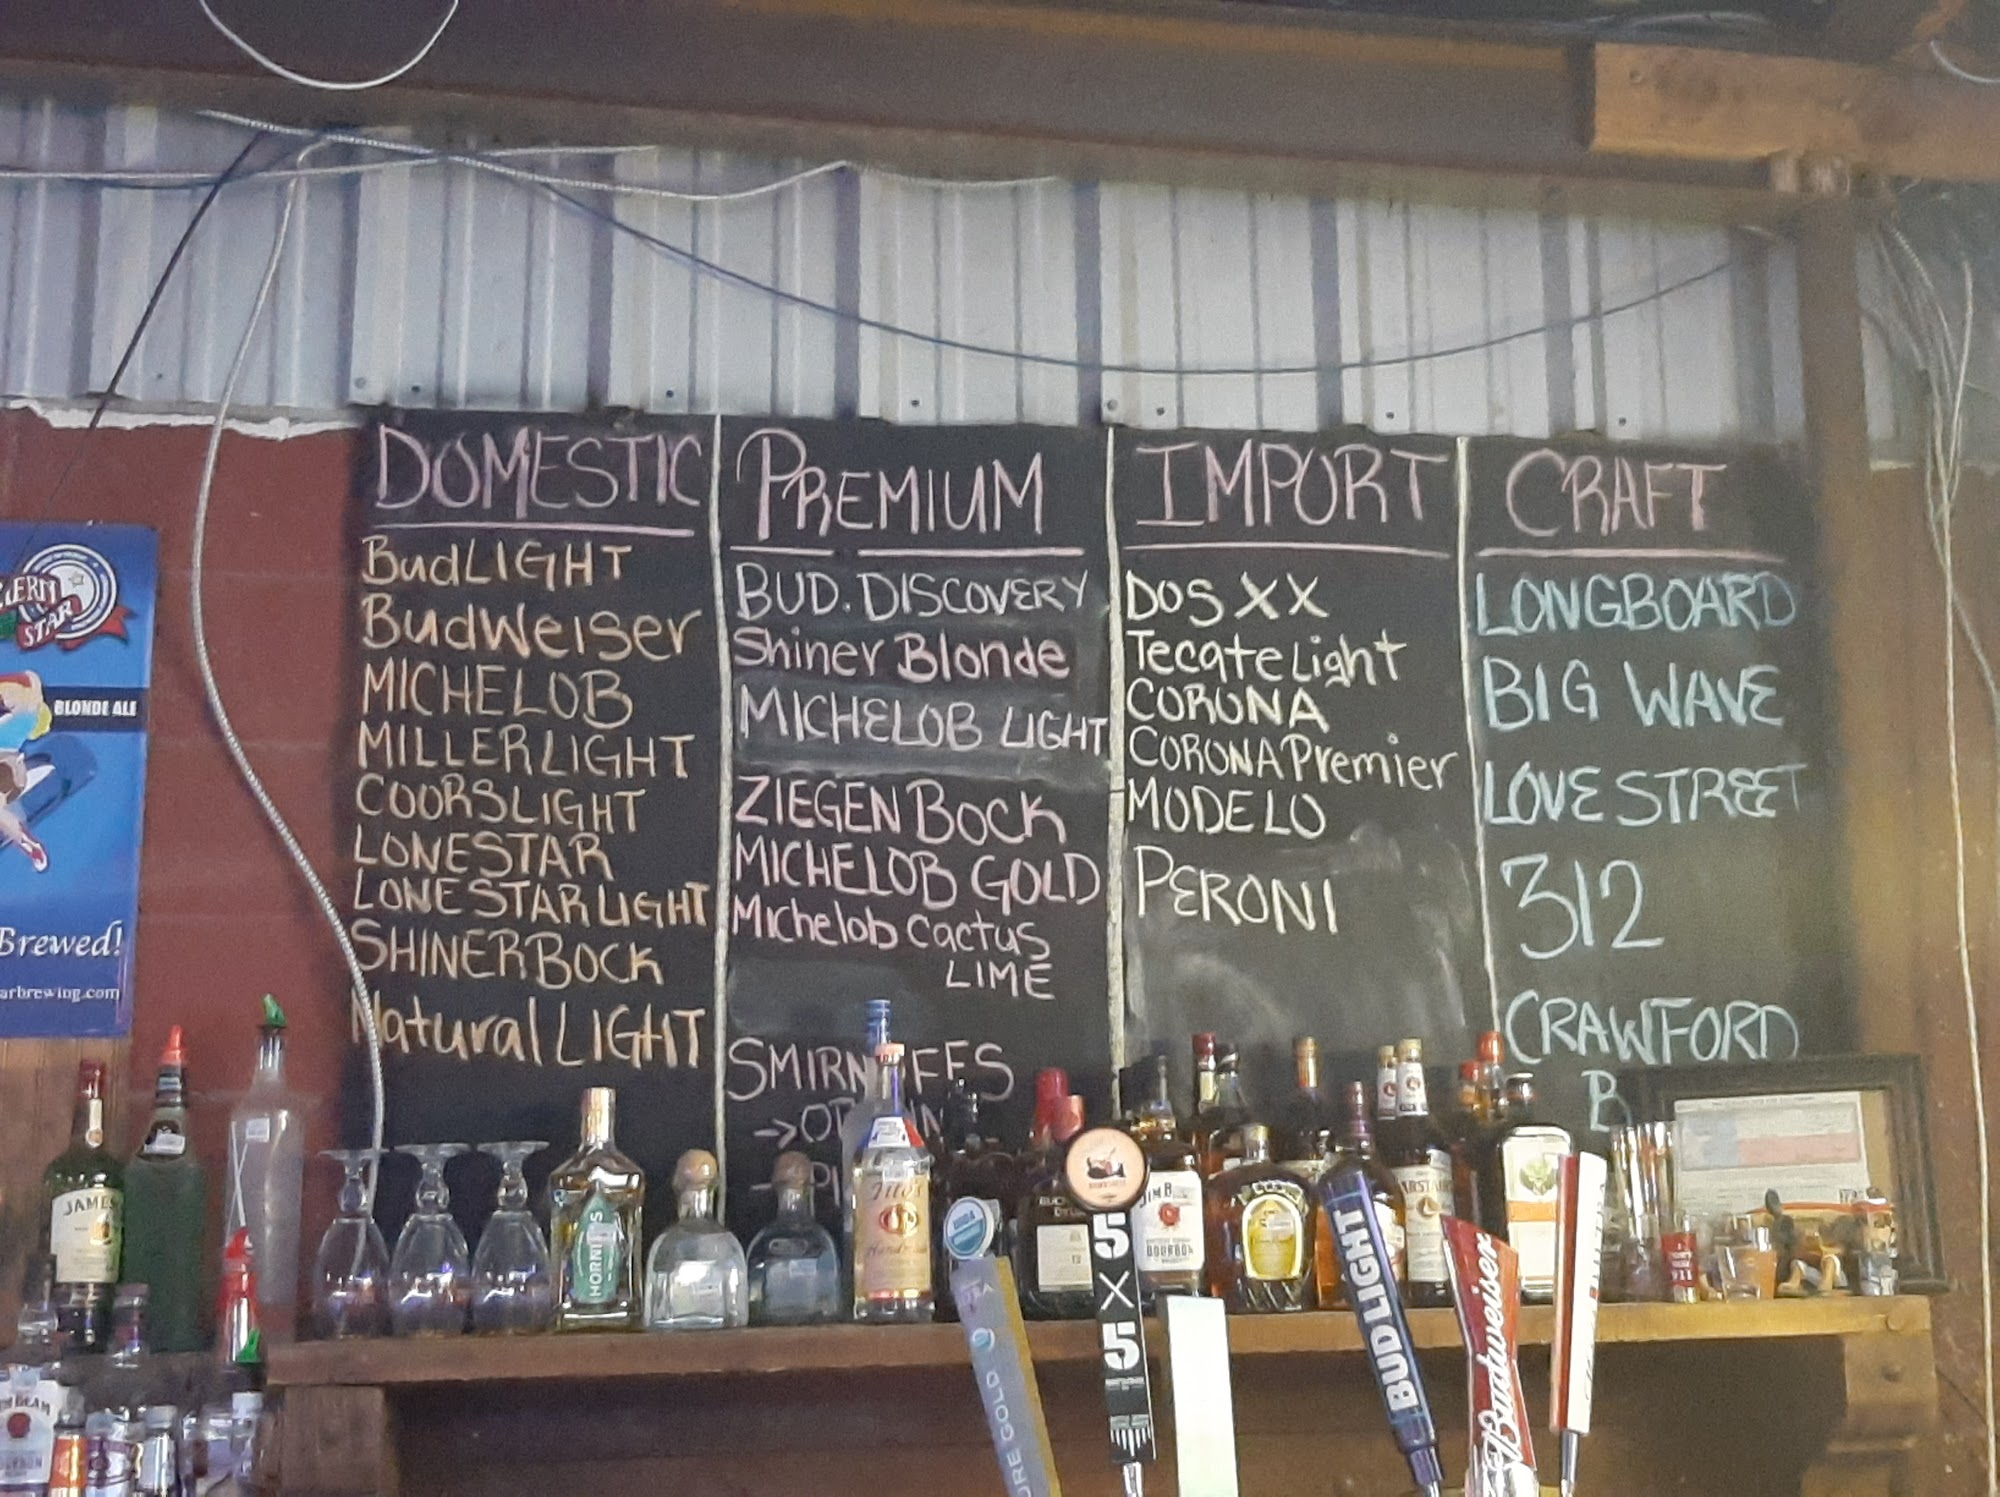 DOMESTIC
BudLIGHT
BudWeiser
MICHELOB
MILLERLIGHT
COORSLIGHT
LONESTAR
LONESTARLIGHT
SHINERBOCK
Natural LIGHT
PREMIUM
BUD. DISCOVERY
Shiner Blonde
MICHELOB LIGHT
ZIEGEN BOCK
MICHELOB GOLD
Michelob Cactus
LIME
IMPORT
DOS XX
Tecate Light
CORONA
CORONA Premier
MODELO
PERONI
CRAFT
LONGBOARD
BIG WAVE
LOVE STREET
312
CRAWFORD
STAR
BLONDE ALE
Brewed!
arbrewing.com
HORNITOS
Tito's
JIM B
BOURBON
5 X 5
BUD LIGHT
Budweiser
URE GOLD